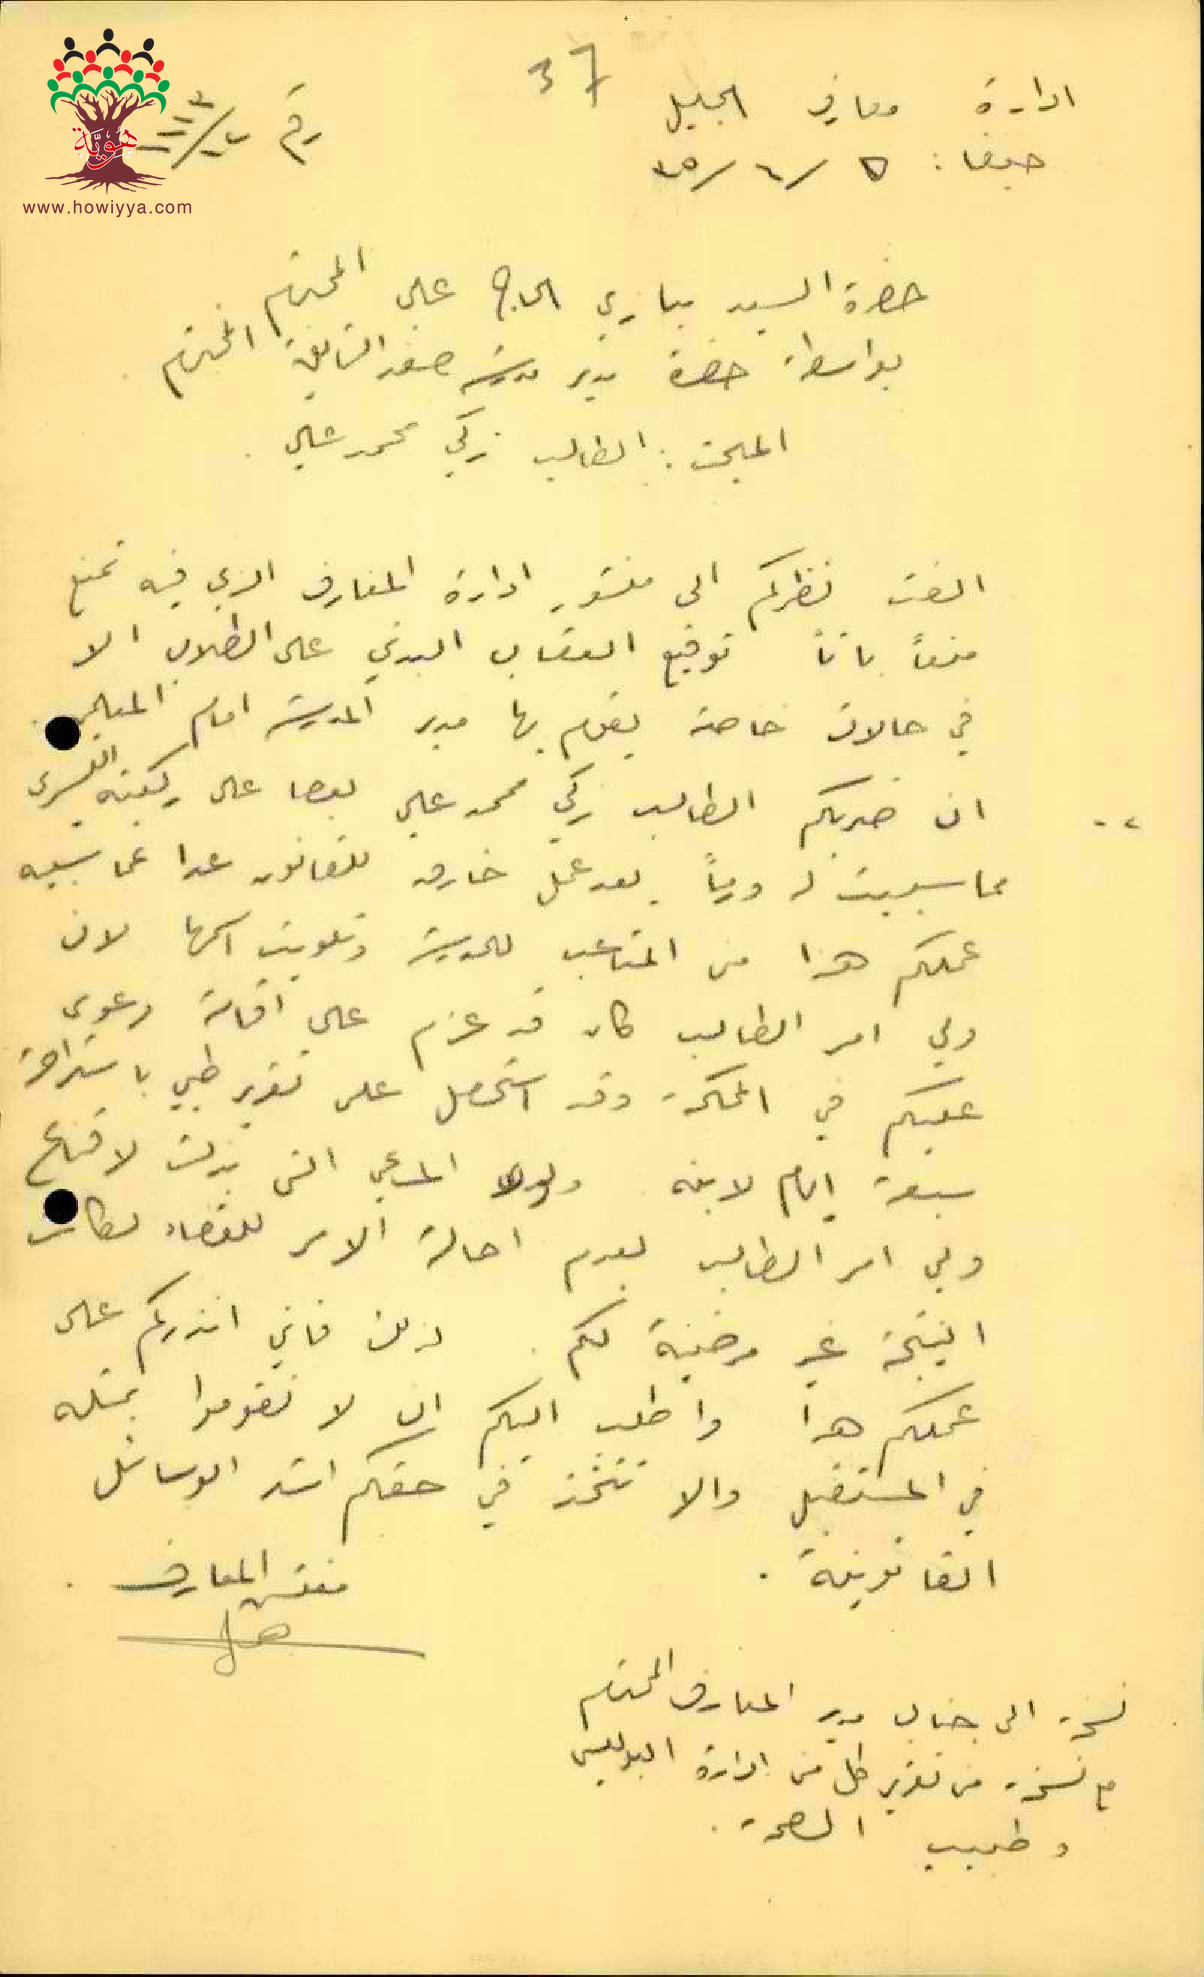 37
ادارة معارف الجليل
رقم
حيفا: ٥/٦/٣٥
هوية
www.howiyya.com
حضرة السيد الحاج علي المحترم
بواسطة حضرة مدير مدرسة صفد الثانوية المحترم
المبحث: الطالب زكي محمد علي.
الفت نظركم الى منشور ادارة المعارف الذي فيه تمنع
منعاً باتاً توقيع العقاب البدني على الطلاب الا
في حالات خاصة يقوم بها مدير المدرسة امام المعلمين.
٢- ان ضربكم الطالب زكي محمد علي بعصا على ركبته اليسرى
مما سببت له ورماً يعد عمل خارق للقانون عدا عما سببه
عملكم هذا من المتاعب للمدرسة وتلويث اسمها لان
ولي امر الطالب كان قد عزم على اقامة دعوى
عليكم في المحكمة وقد استحصل على تقرير طبي باستراحة
سبعة ايام لابنه ولولا المساعي التي بذلت لاقناع
ولي امر الطالب بعدم احالة الامر للقضاء لكانت
النتيجة غير مرضية لكم. لذلك فاني انذركم على
عملكم هذا واطلب اليكم ان لا تقوموا بمثله
في المستقبل والا تتخذ في حقكم اشد الوسائل
القانونية.
مفتش المعارف
نسخة الى جناب مدير المعارف المحترم
مع نسخة من تقرير كل من ادارة البوليس
وطبيب الصحة.